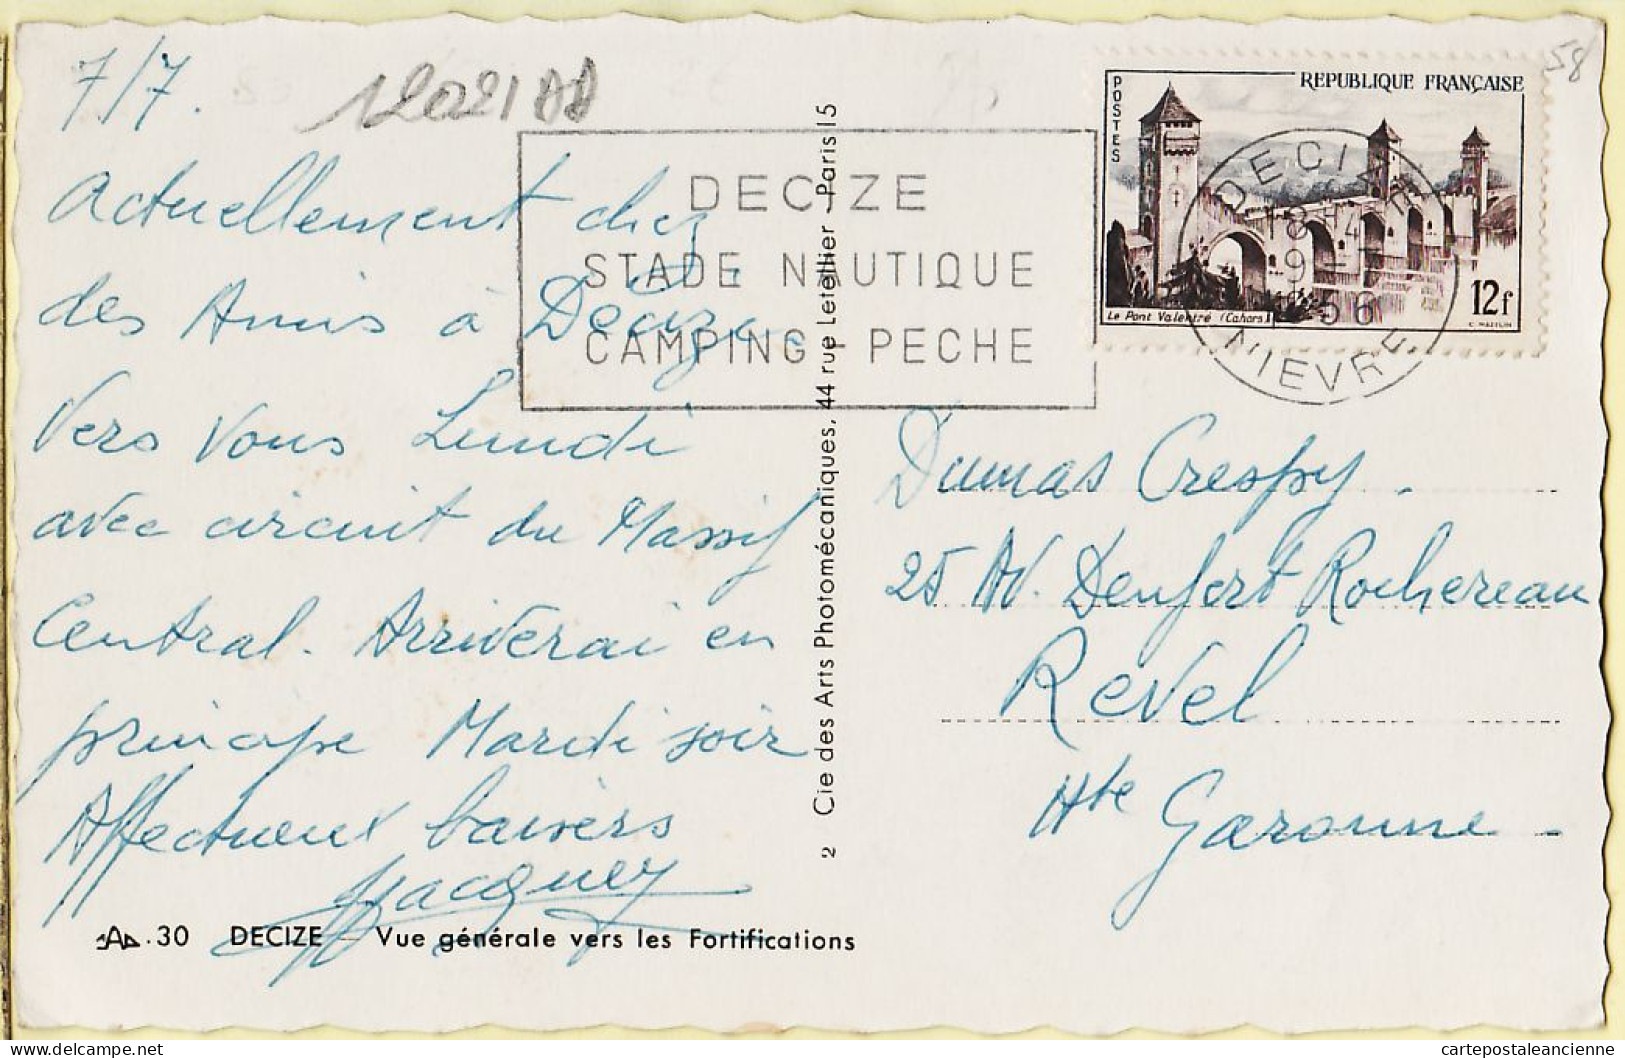 7/7.
12021AD
58
Actuellement chez
des Amis à Decize
Vers Vous Lundi
avec circuit du Massif
Central. Arriverai en
principe Mardi soir
Affectueux baisers
Jacquey
DECIZE
STADE NAUTIQUE
CAMPING - PECHE
POSTES
REPUBLIQUE FRANÇAISE
Le Pont Valentré (Cahors)
12f
C. MAZELIN
DECIZE
18H
9-7
1956
NIEVRE
2 Cie des Arts Photomécaniques, 44 rue Letellier - Paris 15
Dumas Crespy.
25 Av. Denfert Rochereau
Revel
Hte Garonne
.30 DECIZE - Vue générale vers les Fortifications
cartepostaleancienne